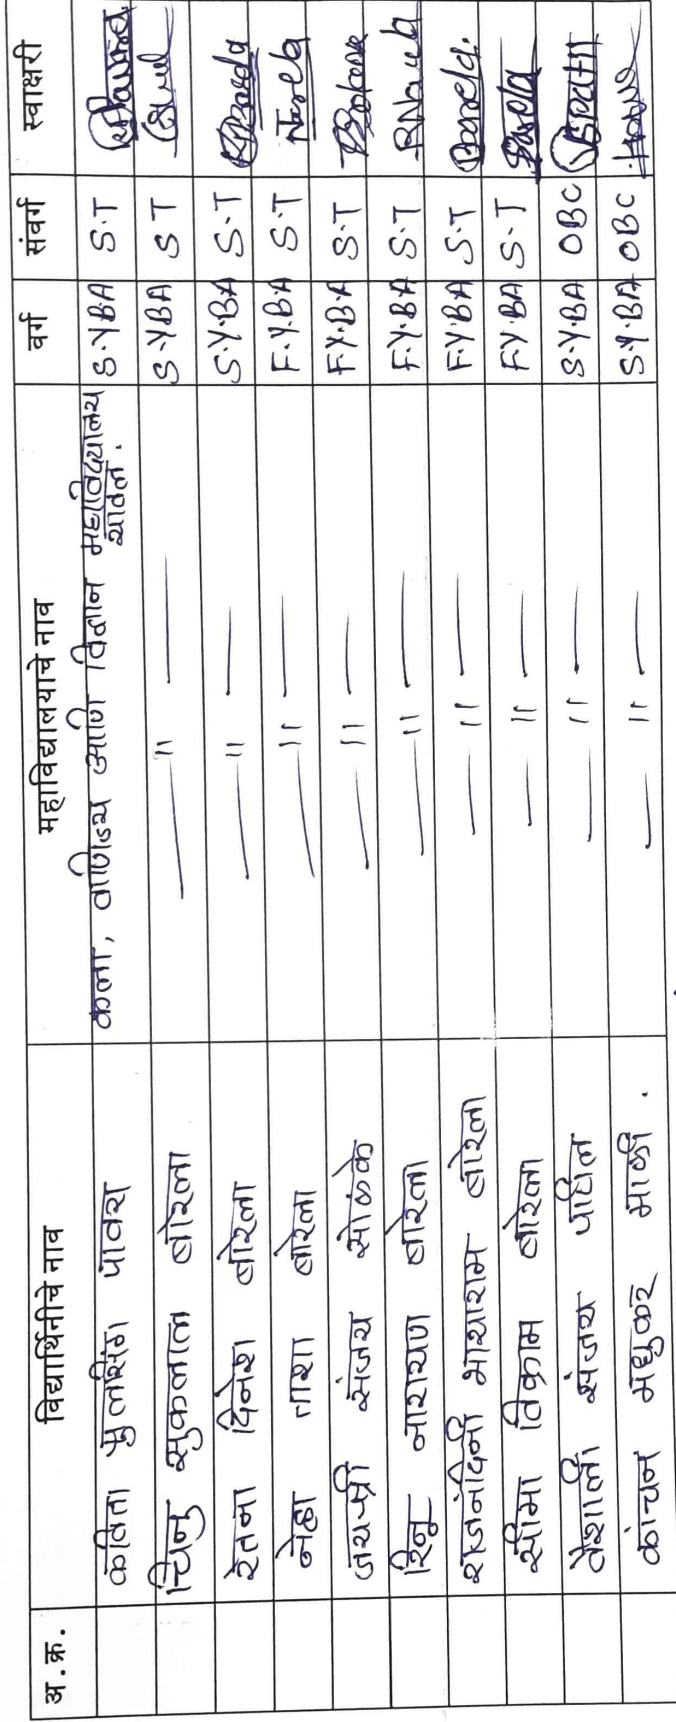 अ.क्र. विद्यार्थिनीचे नाव महाविद्यालयाचे नाव वर्ग संवर्ग स्वाक्षरी
कविता फुलसिंग पावरा कला, वाणिज्य आणि विज्ञान महाविद्यालय यावल. S.YBA S.T
चिनु सुकलाल बारेला — 11 — S.YBA S T
रतना दिनेश बारेला — 11 — S.Y.BA S.T
नेहा ताशा बारेला — 11 — F.Y.B.A S.T
जयश्री संजय सोळंके — 11 — F.Y.B.A S.T
रिनु नारायण बारेला — 11 — F.Y.BA S.T
राजनंदिनी भायाराम बारेला — 11 — F.Y.BA S.T Barela.
सीमा विक्राम बारेला — 11 — F.Y.BA S.T Barela
वैशाली संजय पाटिल — 11 — S.Y.BA OBC
कांचन मधुकर माळी. — 11 — S.Y.BA OBC